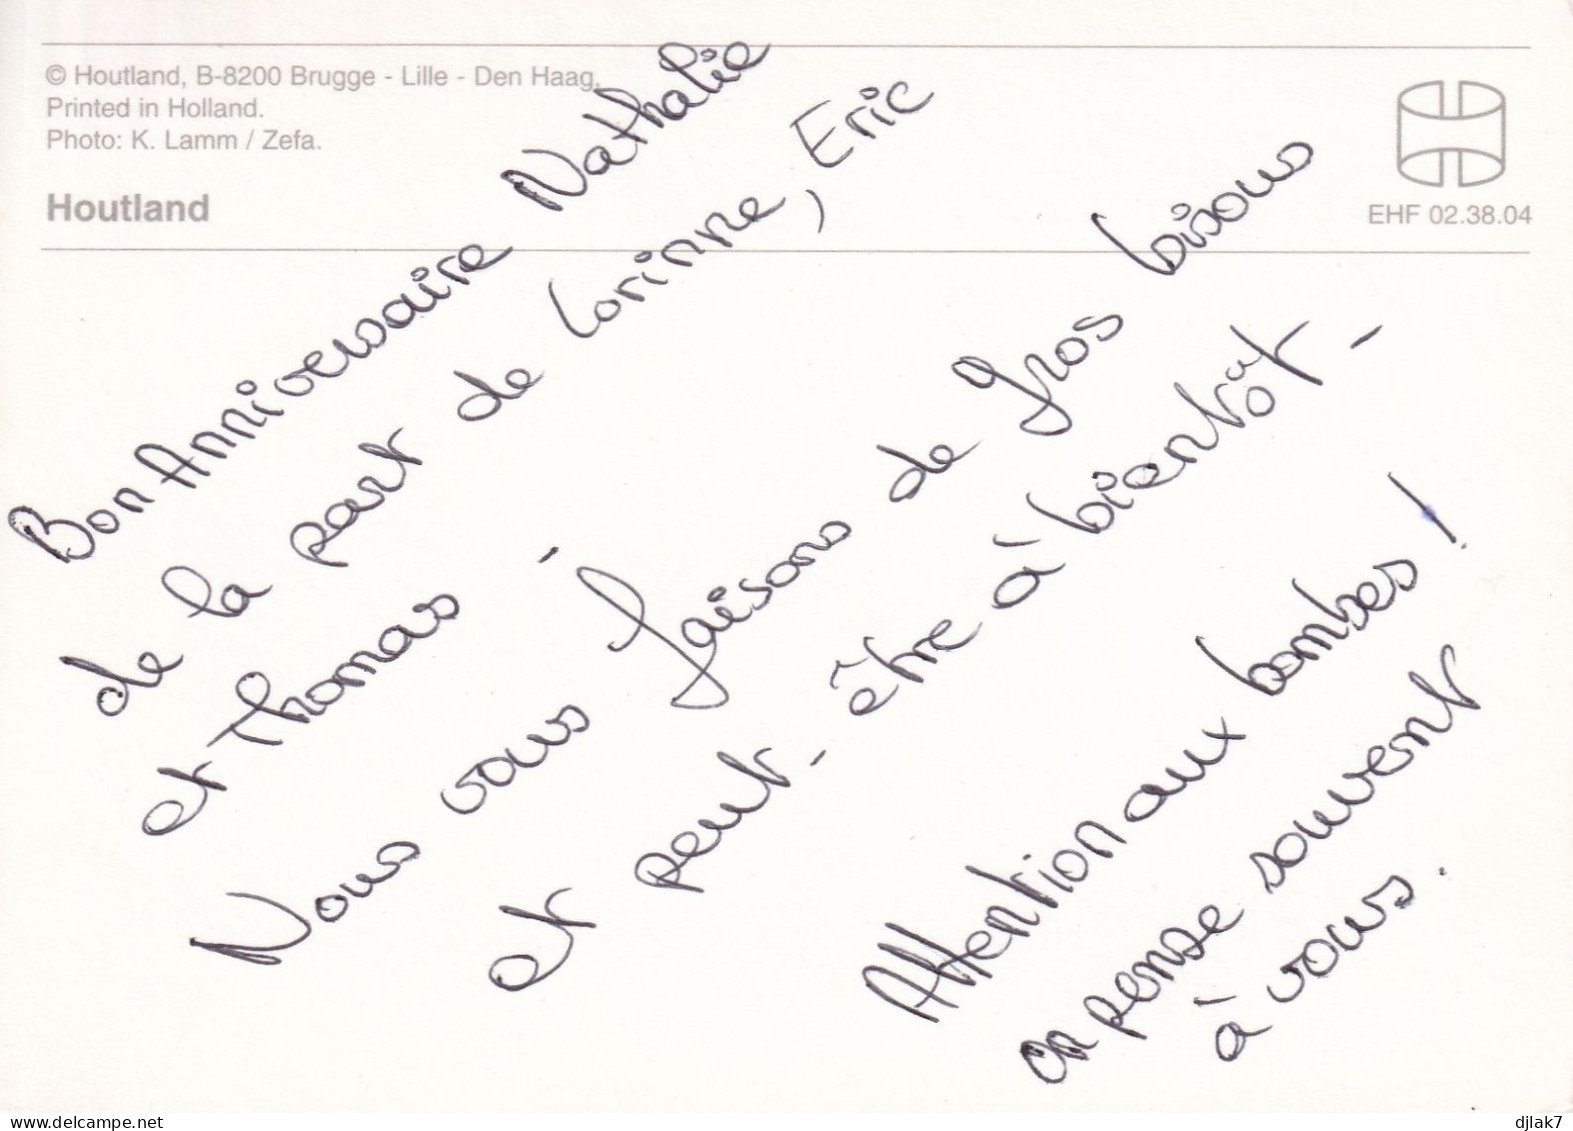 © Houtland, B-8200 Brugge - Lille - Den Haag,
Printed in Holland.
Photo: K. Lamm / Zefa.
Houtland
EHF 02.38.04
Bon Anniversaire Nathalie
de la part de Corinne, Eric
et Thomas -
Nous vous faisons de gros bisous
et peut-être à bientôt -
Attention aux bombes !
on pense souvent
à vous.
www.delcampe.net
djlak7